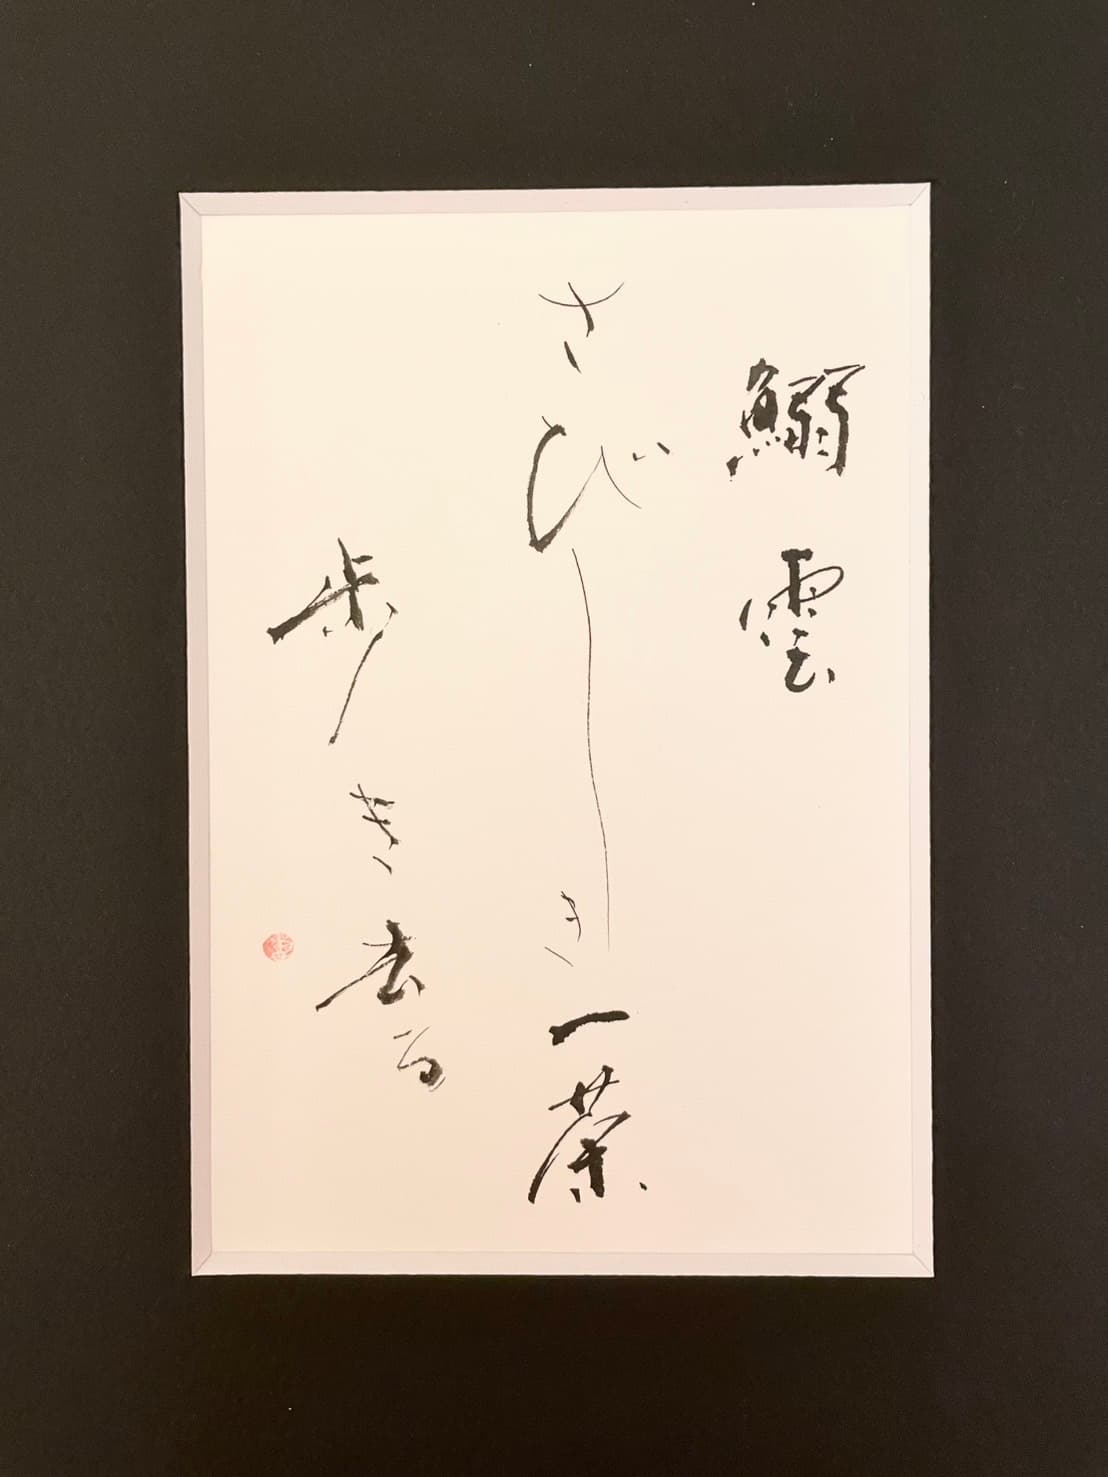 鰯雲
さびしき一茶
歩き去る